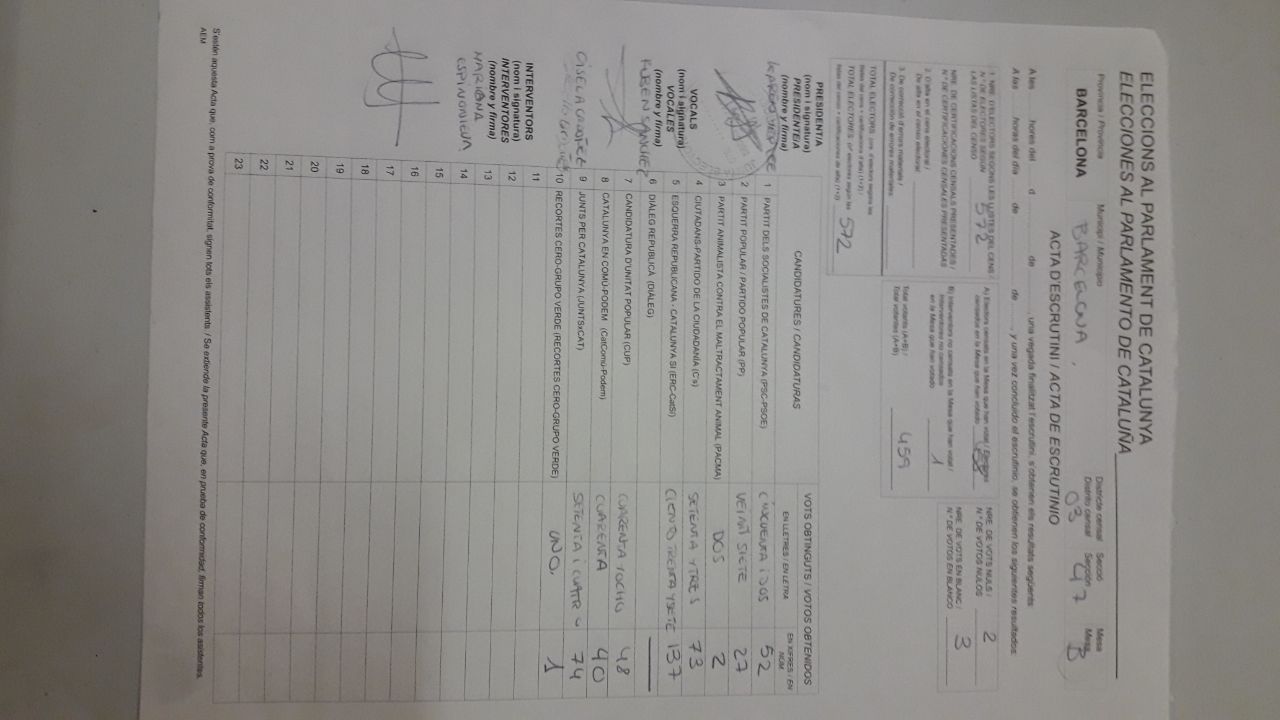 ELECCIONS AL PARLAMENT DE CATALUNYA
ELECCIONES AL PARLAMENTO DE CATALUÑA
Província / Provincia Municipi / Municipio Districte censal Secció Mesa
Distrito censal Sección Mesa
BARCELONA BARCELONA, 03 47 B
ACTA D'ESCRUTINI / ACTA DE ESCRUTINIO
A les hores del d de una vegada finalitzat l'escrutini, s'obtenen els resultats següents:
A las horas del día de de y una vez concluido el escrutinio, se obtienen los siguientes resultados:
1. NRE. D'ELECTORS SEGONS LES LLISTES DEL CENS /
N.º DE ELECTORES SEGÚN
LAS LISTAS DEL CENSO 572
NRE. DE CERTIFICACIONS CENSALS PRESENTADES /
N.º DE CERTIFICACIONES CENSALES PRESENTADAS
2. D'alta en el cens electoral /
De alta en el censo electoral
3. De correcció d'errors materials /
De corrección de errores materiales
TOTAL ELECTORS
TOTAL ELECTORES 572
A) Electors censats en la Mesa que han votat / Electores
censados en la Mesa que han votado
B) Interventors no censats en la Mesa que han votat /
Interventores no censados
en la Mesa que han votado 1
Total votants (A+B) /
Total votantes (A+B) 459
NRE. DE VOTS NULS /
N.º DE VOTOS NULOS 2
NRE. DE VOTS EN BLANC /
N.º DE VOTOS EN BLANCO 3
PRESIDENT/A
(nom i signatura)
PRESIDENTE/A
(nombre y firma)
VOCALS
(nom i signatura)
VOCALES
(nombre y firma)
RUBEN SANCHEZ
INTERVENTORS
(nom i signatura)
INTERVENTORES
(nombre y firma)
MARIONA
CANDIDATURES / CANDIDATURAS VOTS OBTINGUTS / VOTOS OBTENIDOS
EN LLETRES / EN LETRA EN XIFRES / EN NÚM.
1 PARTIT DELS SOCIALISTES DE CATALUNYA (PSC-PSOE) CINCUENTA I DOS 52
2 PARTIT POPULAR / PARTIDO POPULAR (PP) VEINT SIETE 27
3 PARTIT ANIMALISTA CONTRA EL MALTRACTAMENT ANIMAL (PACMA) DOS 2
4 CIUTADANS-PARTIDO DE LA CIUDADANÍA (C's) SETENTA Y TRES 73
5 ESQUERRA REPUBLICANA - CATALUNYA SÍ (ERC-CatSí) CIENTO TREINTA Y SIETE 137
6 DIÀLEG REPUBLICÀ (DIÀLEG)
7 CANDIDATURA D'UNITAT POPULAR (CUP) CUARENTA Y OCHO 48
8 CATALUNYA EN COMÚ-PODEM (CatComú-Podem) CUARENTA 40
9 JUNTS PER CATALUNYA (JUNTSxCAT) SETENTA I CUATRO 74
10 RECORTES CERO-GRUPO VERDE (RECORTES CERO-GRUPO VERDE) UNO, 1
11
12
13
14
15
16
17
18
19
20
21
22
23
S'estén aquesta Acta que, com a prova de conformitat, signen tots els assistents. / Se extiende la presente Acta que, en prueba de conformidad, firman todos los asistentes.
AEM